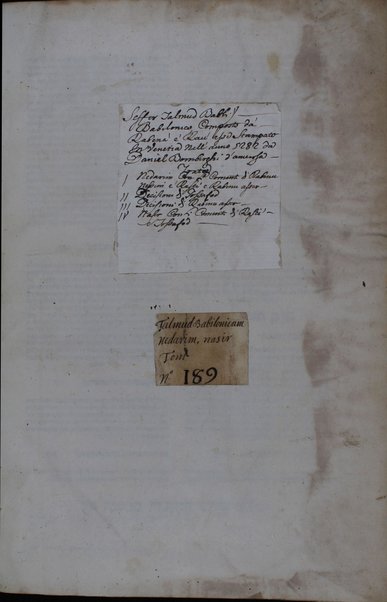 Seffer Talmud Babli
Babilonico Composto da
Rabina è Rau Assi Stampato
in Venetia nell'anno 5282 da
Daniel Bombirghi d'anversa
Tratta
I Nedarim Con i Coment. di Rabenu
Nissim e Rasi e Rabenu Asser
II Decisioni di Tossafod
III Decisioni di Rabenu asser
IV Nasir Con i Coment. di Rasi
e Tossafod
Talmud Babilonicum
Nedarim, nasir
Tom
N° 189